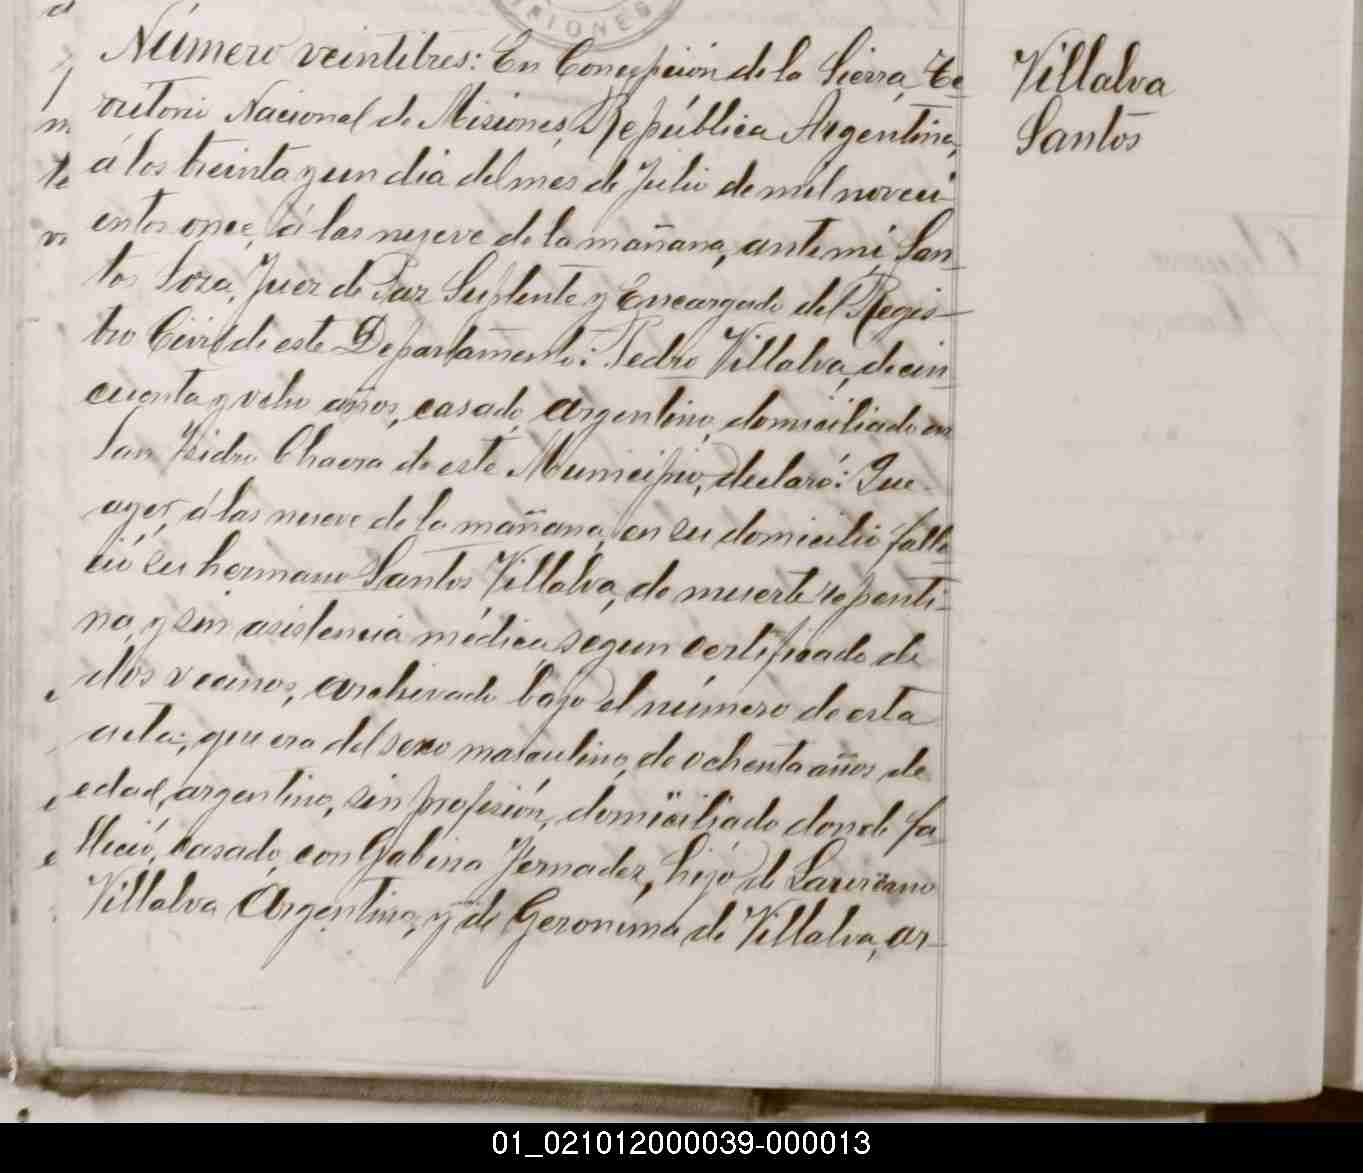 Número veintitres: En Concepción de la Sierra, Te
rritorio Nacional de Misiones, República Argentina,
á los treinta y un dia del mes de Julio de mil noveci
entos once, á las nueve de la mañana, ante mi, San
tos Soza, Juez de Paz Suplente y Encargado del Regis-
tro Civil de este Departamento: Pedro Villalva, de cin
cuenta y ocho años, casado, argentino, domiciliado en
San Isidro Chacra de este Municipio, declaró: Que
ayer, á las nueve de la mañana, en su domicilio falle
ció su hermano Santos Villalva, de muerte repenti-
na, y sin asistencia médica segun certificado de
dos vecinos, archivado bajo el número de esta
acta; que era del sexo masculino, de ochenta años de
edad, argentino, sin profesión, domiciliado donde fa-
lleció, casado, con Gabina Fernadez, hijo de Laureano
Villalva Argentino, y de Geronima de Villalva, ar-
Villalva
Santos
01_021012000039-000013